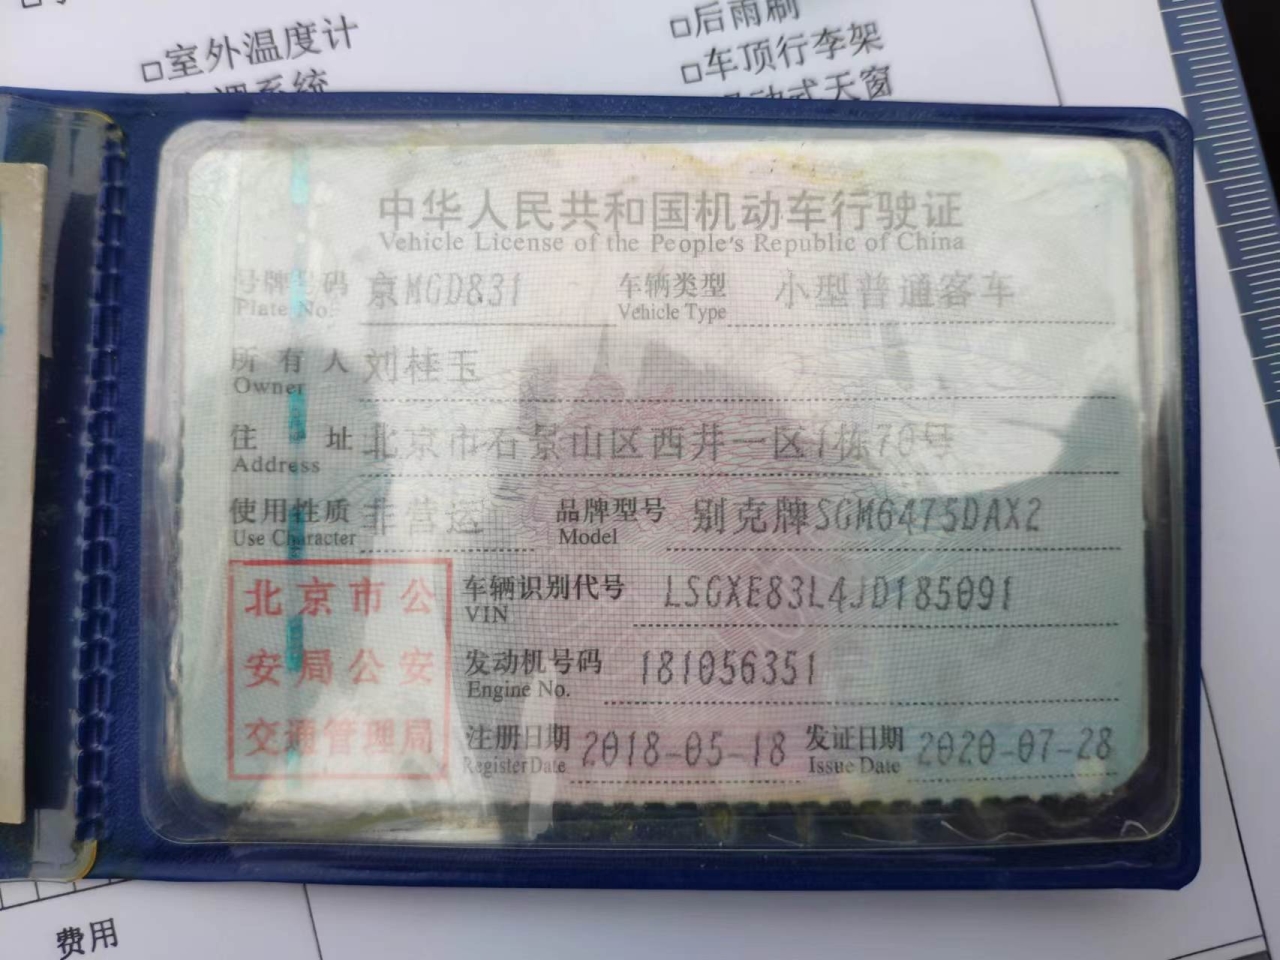 □室外温度计
□后雨刷
□车顶行李架
中华人民共和国机动车行驶证
Vehicle License of the People's Republic of China
号牌号码 京MGD831 车辆类型 小型普通客车
Plate No. Vehicle Type
所有人 刘桂玉
Owner
住址 北京市石景山区西井一区1栋70号
Address
使用性质 非营运 品牌型号 别克牌SGM6475DAX2
Use Character Model
北京市公
安局公安
交通管理局
车辆识别代号 LSGXE83L4JD185091
VIN
发动机号码 181056351
Engine No.
注册日期 2018-05-18 发证日期 2020-07-28
Register Date Issue Date
费用